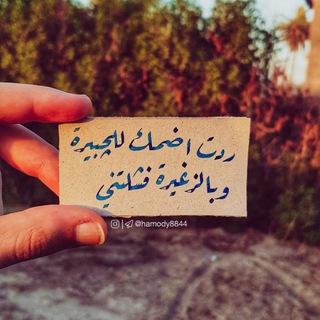 ردت اضمك للچبيرة
وبالزغيرة فشلتني
@hamody8844